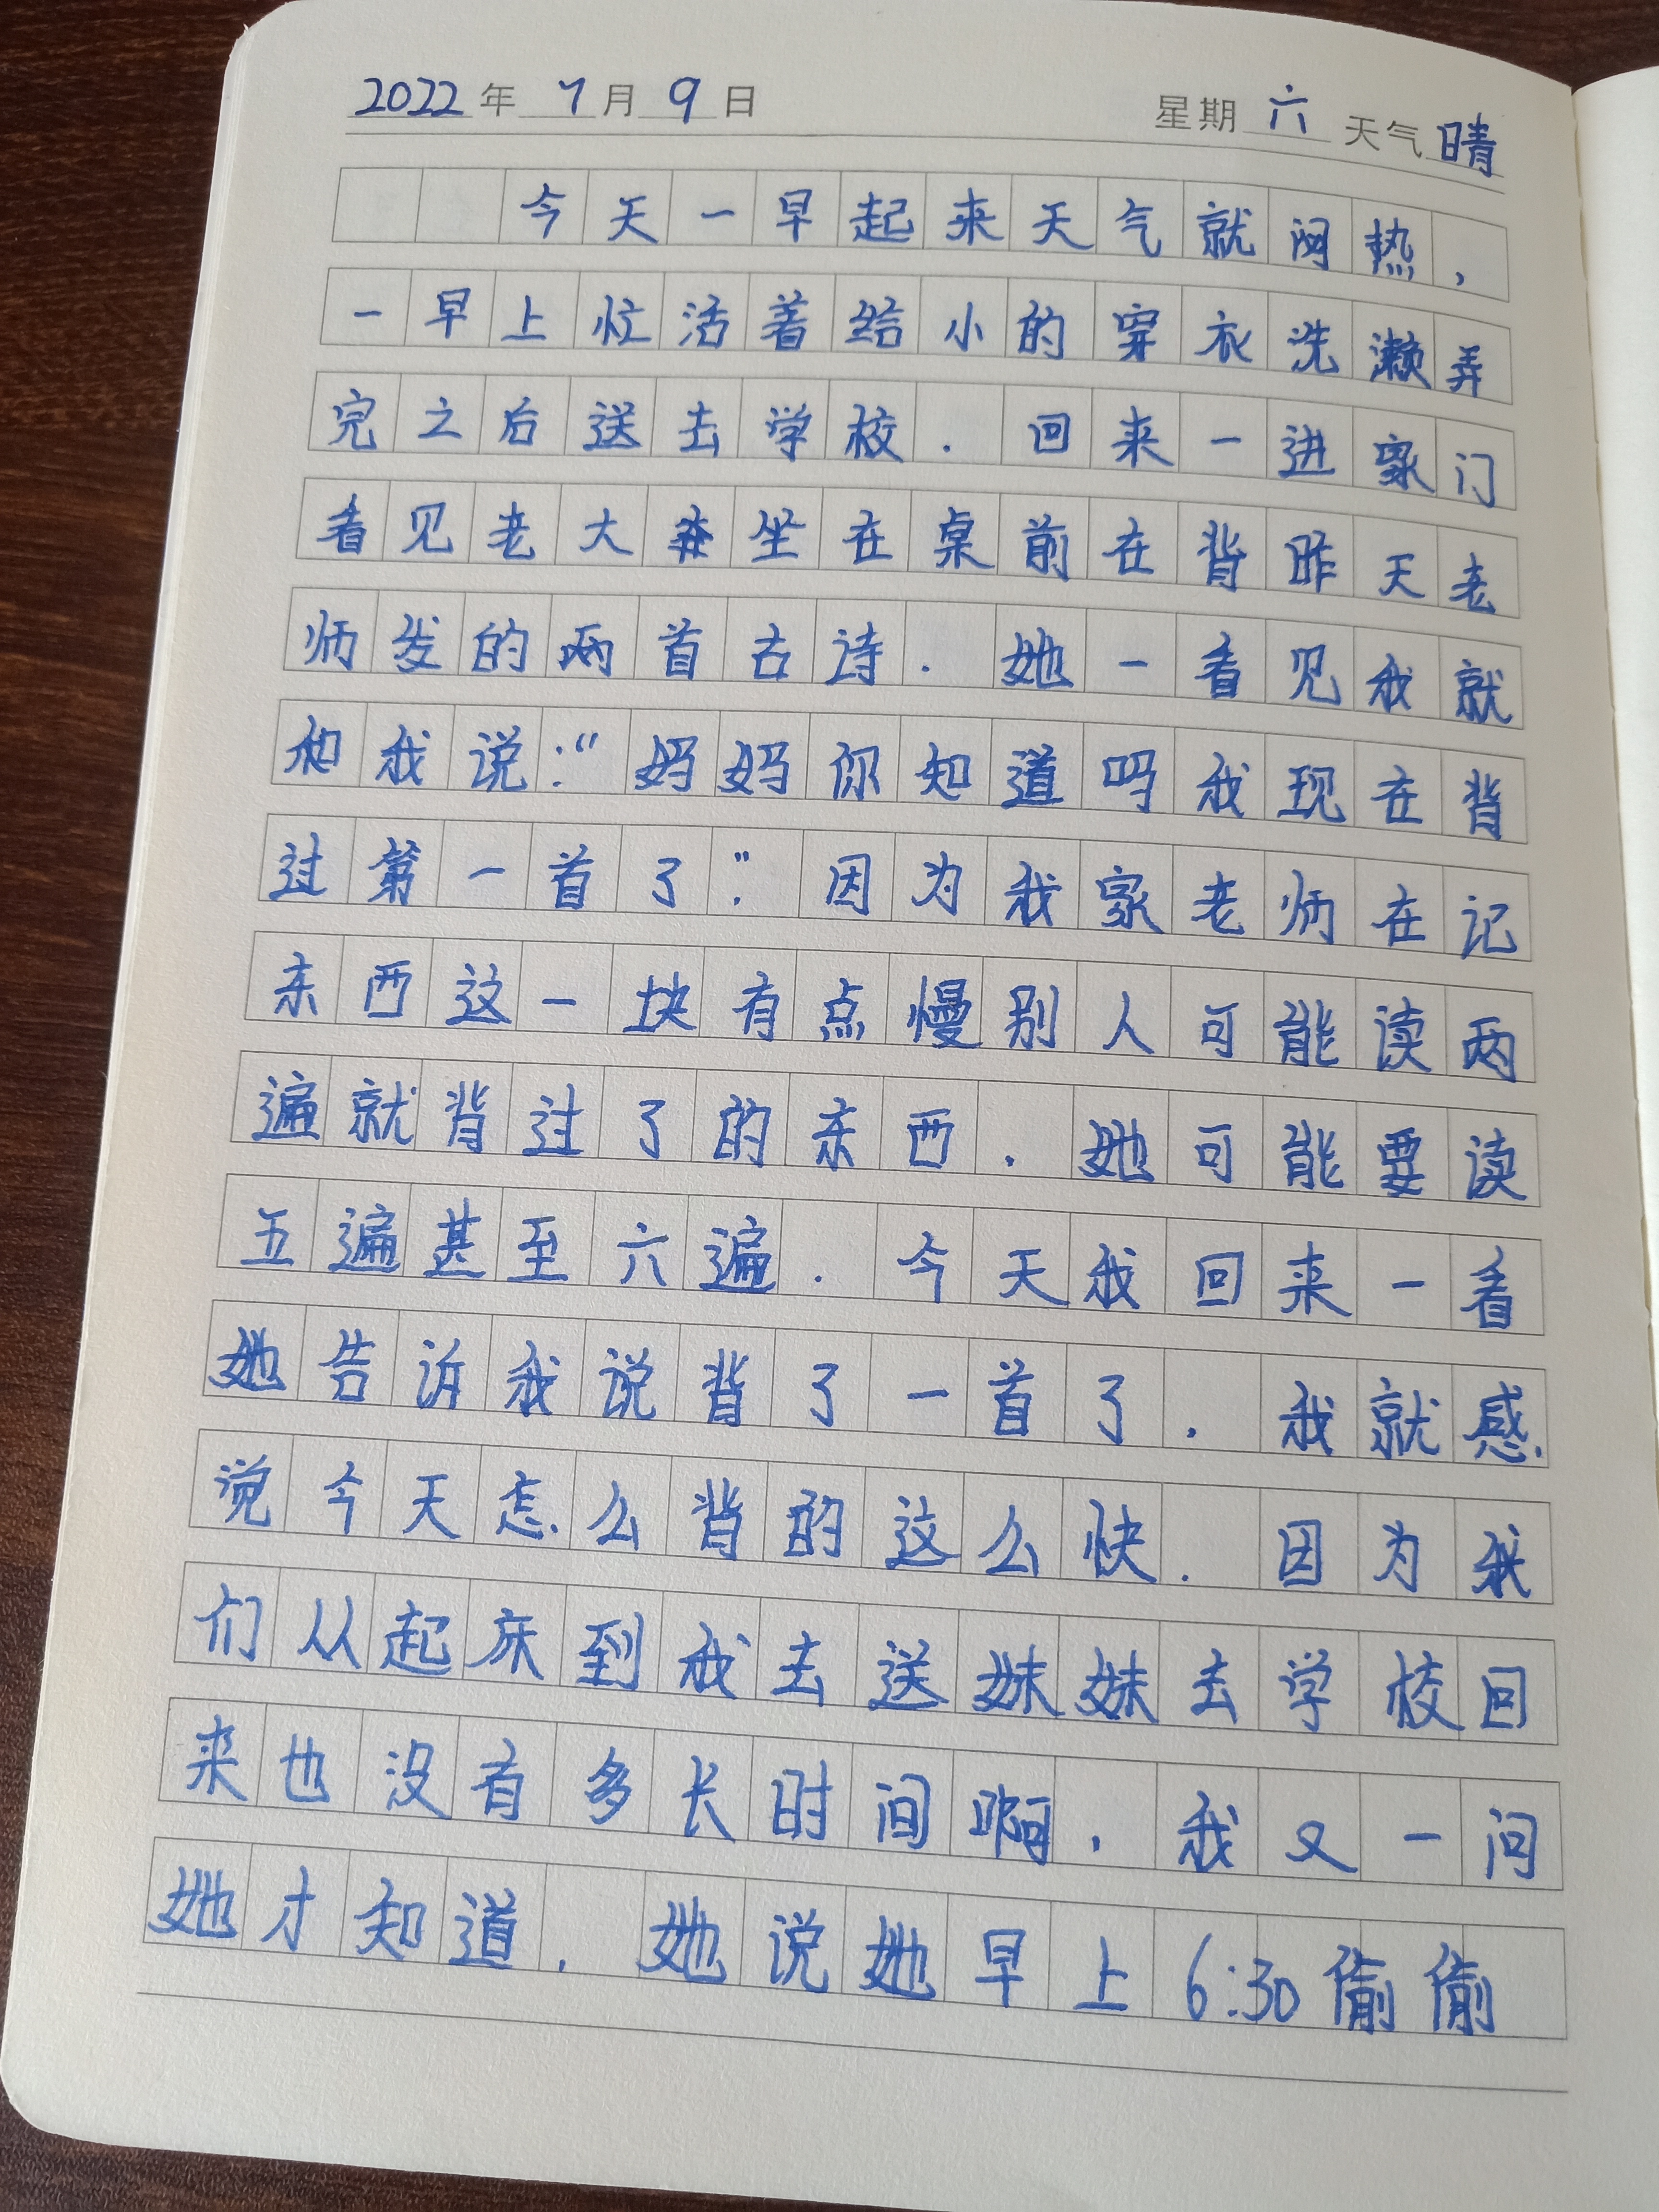 2022年 7月 9日 星期 六 天气 晴
今天一早起来天气就闷热，
一早上忙活着给小的穿衣洗濑弄
完之后送去学校.回来一进家门
看见老大坐在桌前在背昨天老
师发的两首古诗.她一看见我就
和我说:“妈妈你知道吗我现在背
过第一首了”.因为我家老师在记
东西这一块有点慢别人可能读两
遍就背过了的东西.她可能要读
五遍甚至六遍.今天我回来一看
她告诉我说背了一首了.我就感
觉今天怎么背的这么快.因为我
们从起床到我去送妹妹去学校回
来也没有多长时间啊.我又一问
她才知道.她说她早上6:30偷偷